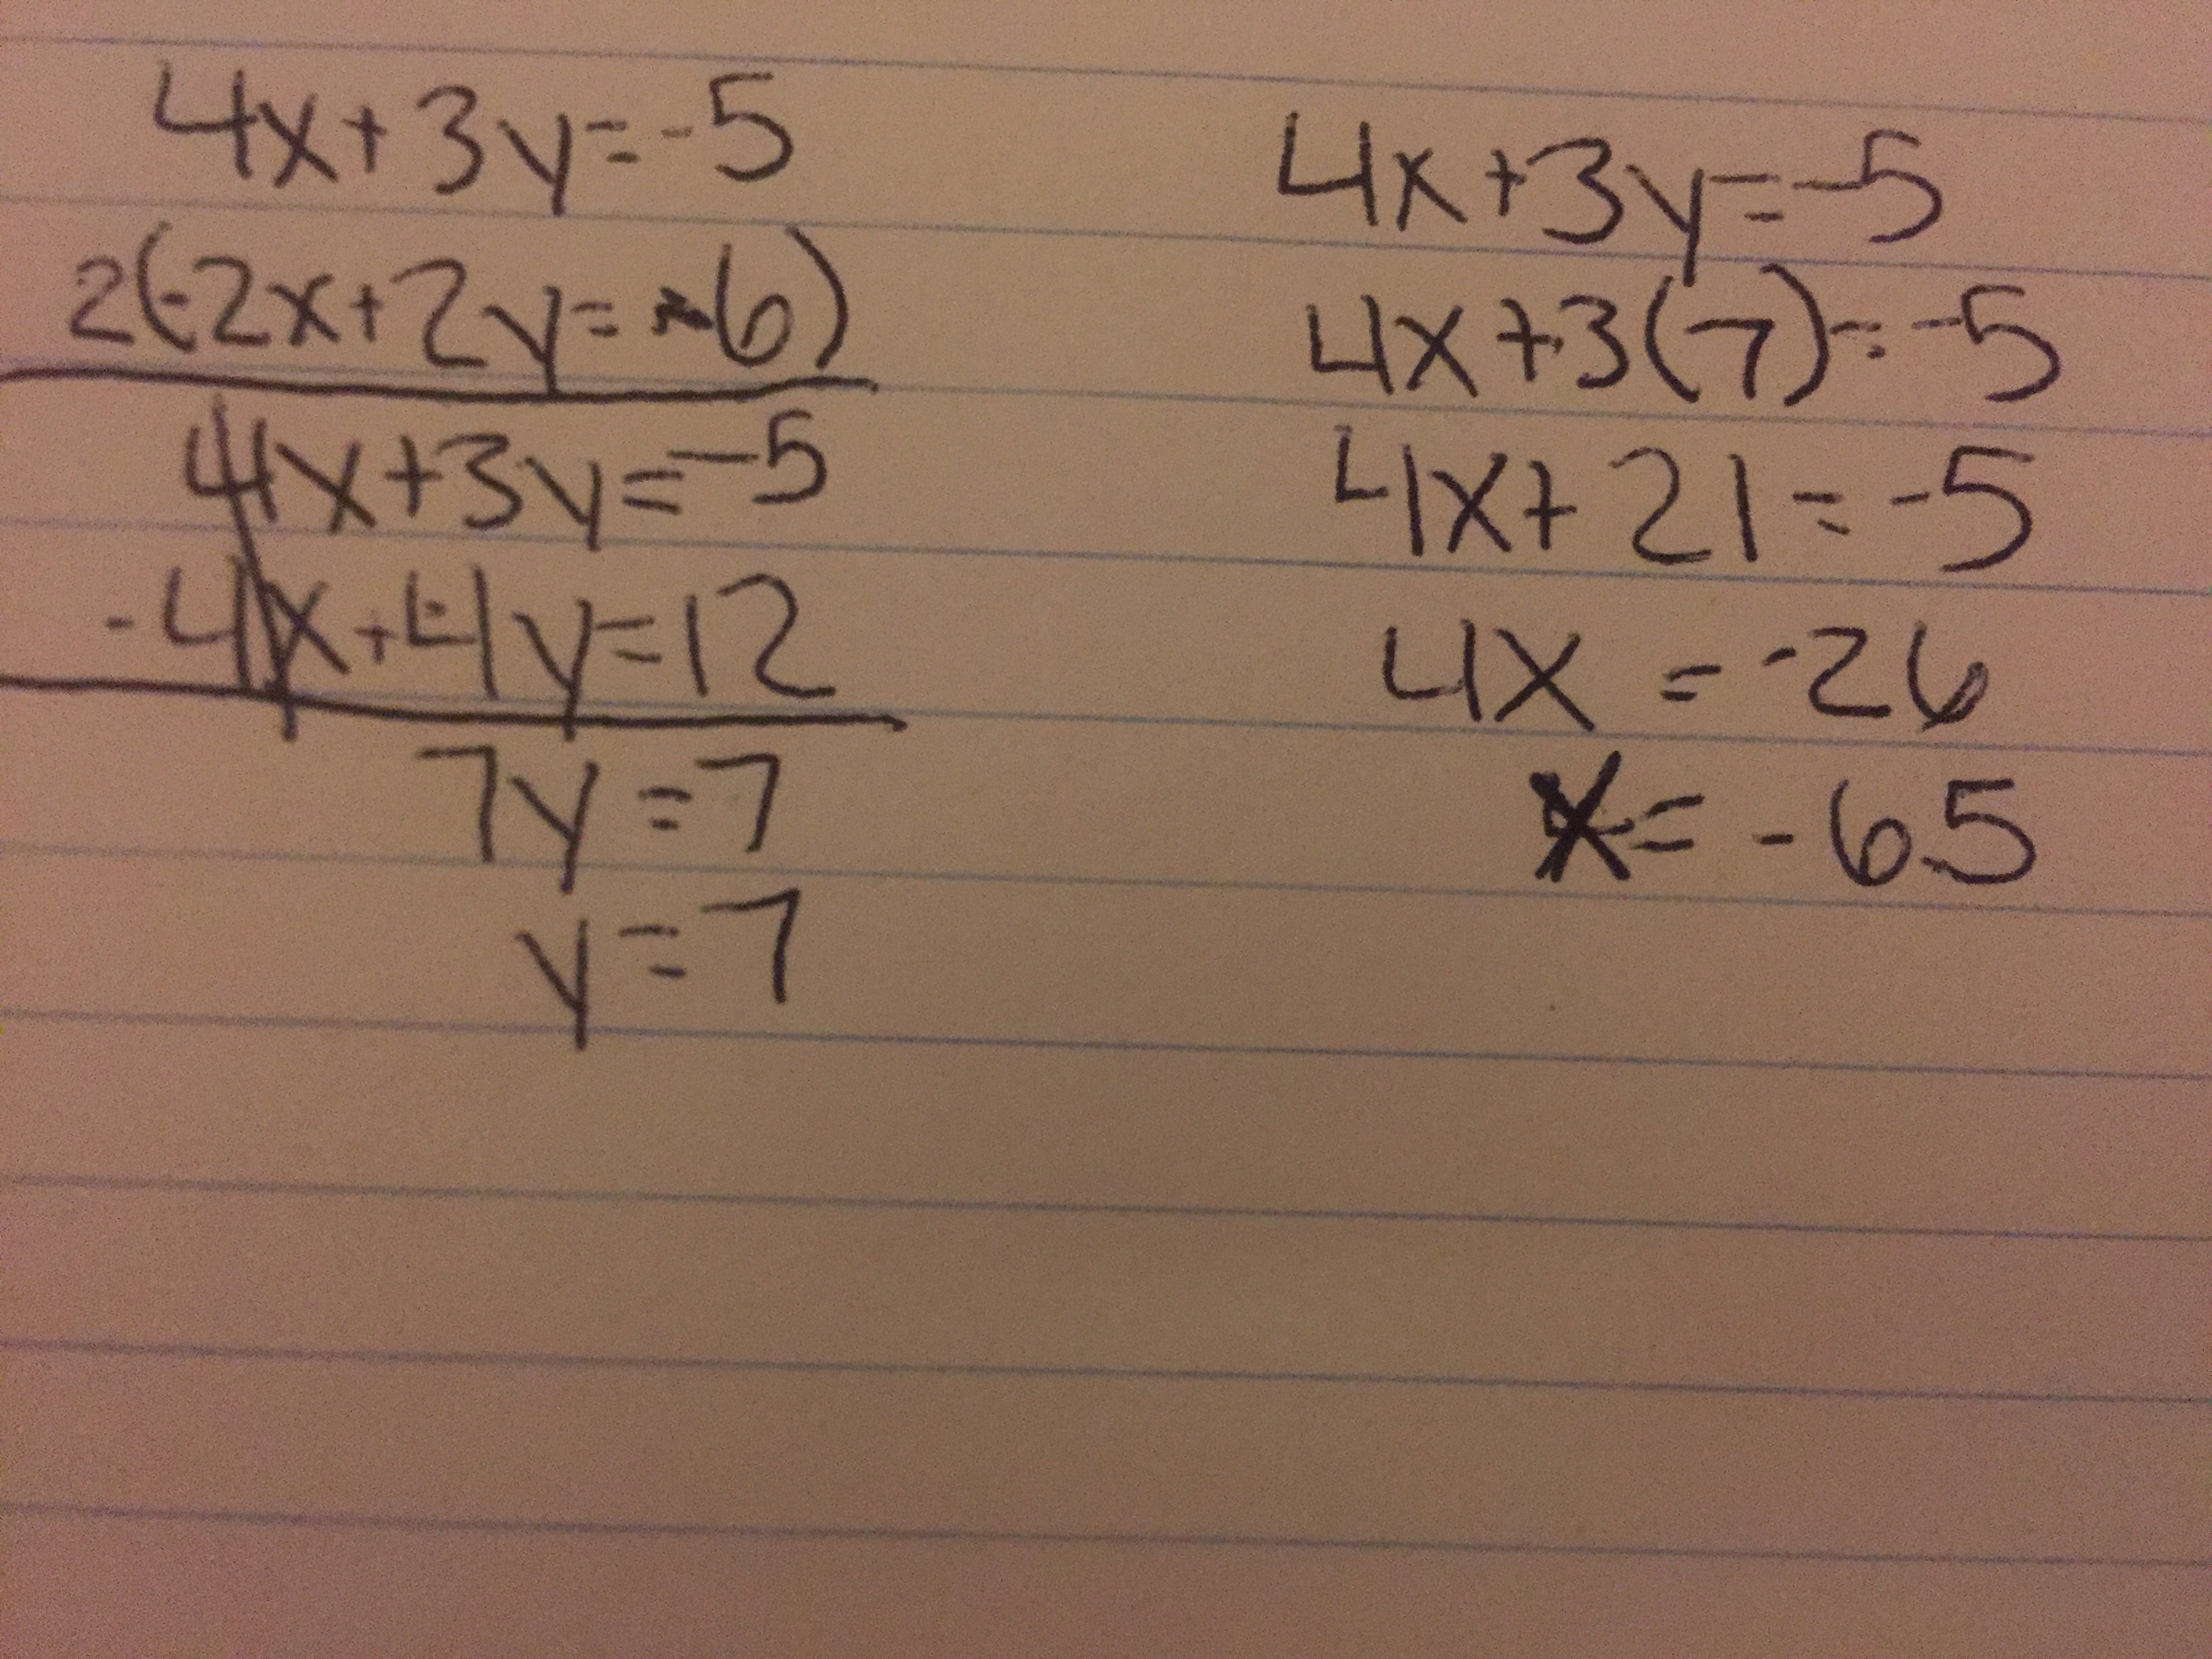 4x+3y=-5
2(-2x+2y=-6)
4x+3y=-5
-4x+4y=12
7y=7
y=7
4x+3y=-5
4x+3(7)=-5
4x+21=-5
4x=-26
x=-6.5